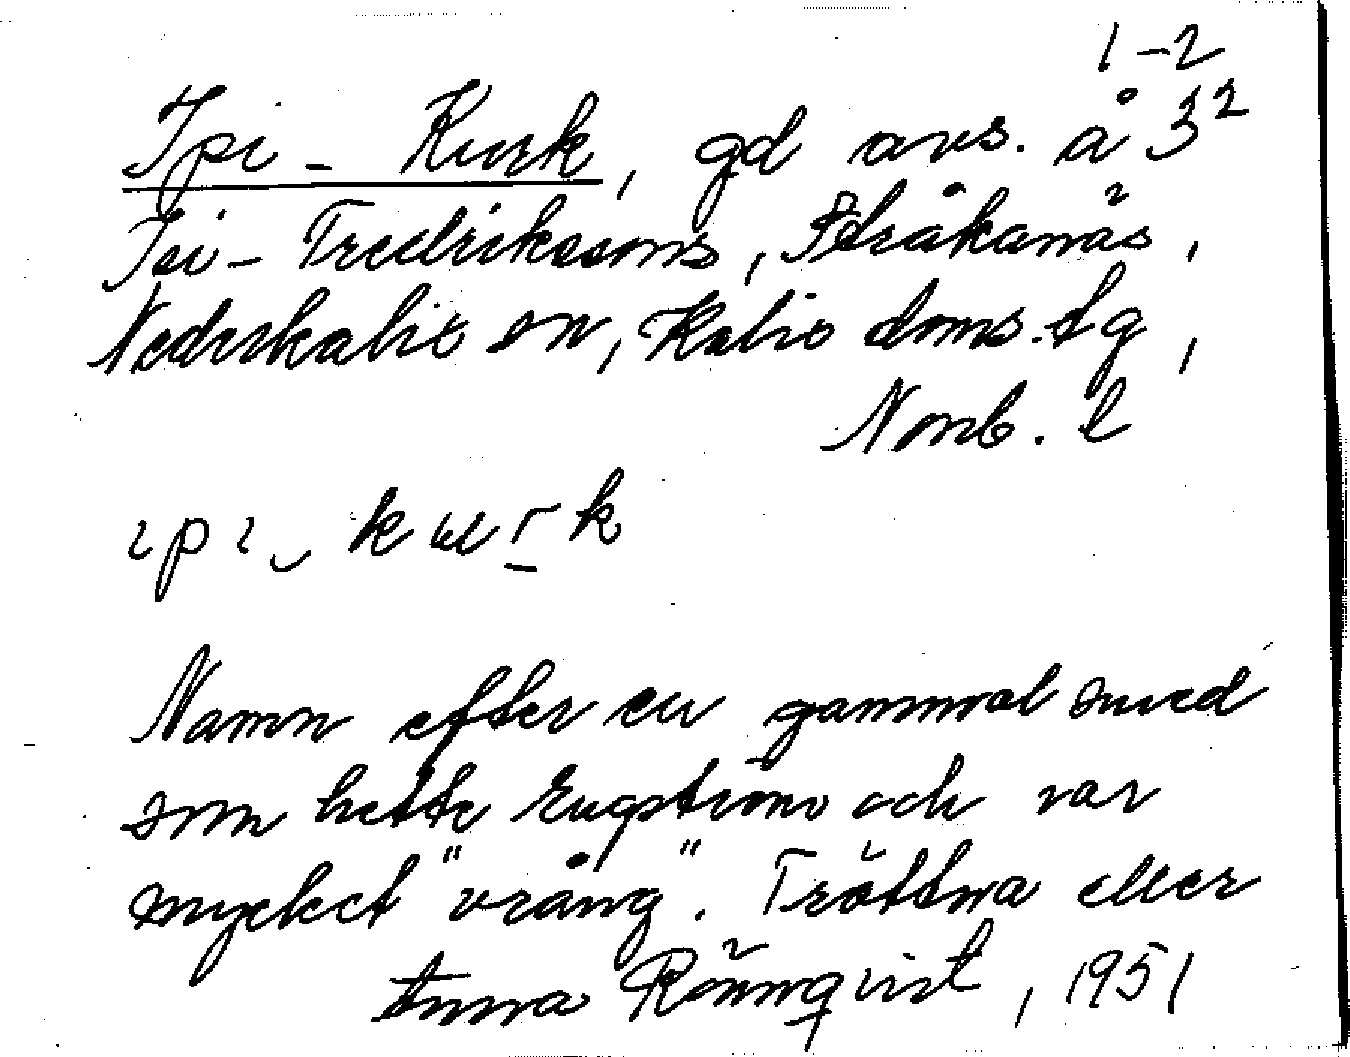 1-2
Ipi - Kurk, gd avs. å 3²
Isi - Fredriksons, Stråkanäs,
Nederkalix sn, Kalix doms. lg,
Norrb. l
ıpı kurk
Namn efter en gammal smed
som hette Engström och var
mycket "vrång". Tröttna eller
Anna Rönnqvist, 1951